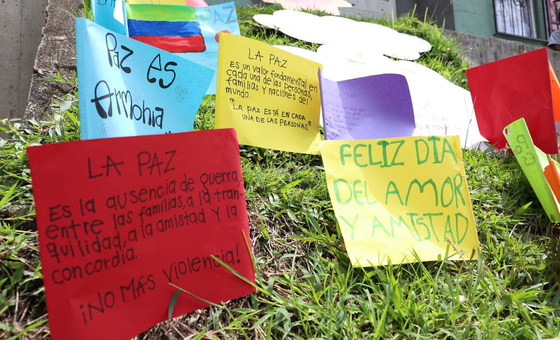 Paz es
Armonia
LA PAZ
Es un valor fundamental en
cada una de las personas,
familias y naciones del
mundo.
"LA PAZ ESTA EN CADA
UNA DE LAS PERSONAS"
LA PAZ
Es la ausencia de guerra
entre las familias, a la tran-
quilidad, a la amistad y la
concordia.
¡NO MÁS violencia!
FELIZ DIA
DEL AMOR
Y AMISTAD